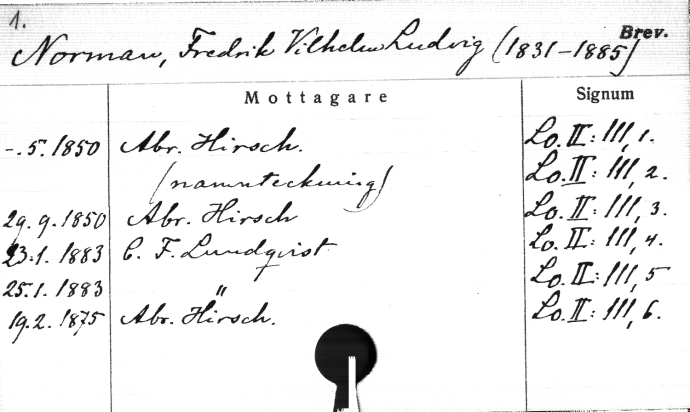 1.
Brev.
Norman, Fredrik Vilhelm Ludvig (1831-1885)
Mottagare Signum
-.5.1850 Abr. Hirsch. Lo. II: III, 1.
(namnteckning) Lo. II: III, 2.
29.9.1850 Abr. Hirsch Lo. II: III, 3.
23.1.1883 C. F. Lundqvist Lo. II: III, 4.
25.1.1883 " Lo. II: III, 5
19.2.1875 Abr. Hirsch. Lo. II: III, 6.